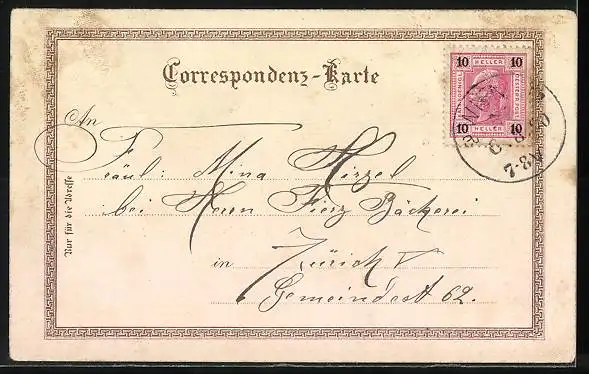 Correspondenz-Karte
An
Fräul: Mina Hirzel
bei Herrn Fierz Bäckerei
in Zürich V
Gemeindestr 62.
Nur für die Adresse
10 HELLER 10
10 HELLER 10
7-8V